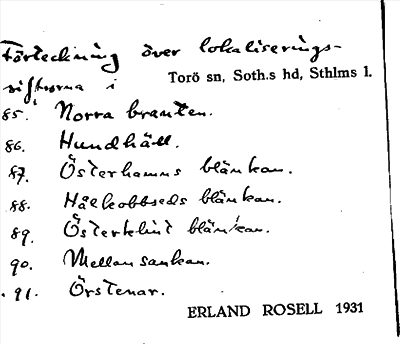 Förteckning över lokaliserings-
siffrorna i Torö sn, Soth.s hd, Sthlms l.
85. Norra branten.
86. Hundhäll.
87. Österhamns blänkan.
88. Hålkobbseds blänkan.
89. Österklint blänkan.
90. Mellansankan.
91. Örstenar.
ERLAND ROSELL 1931